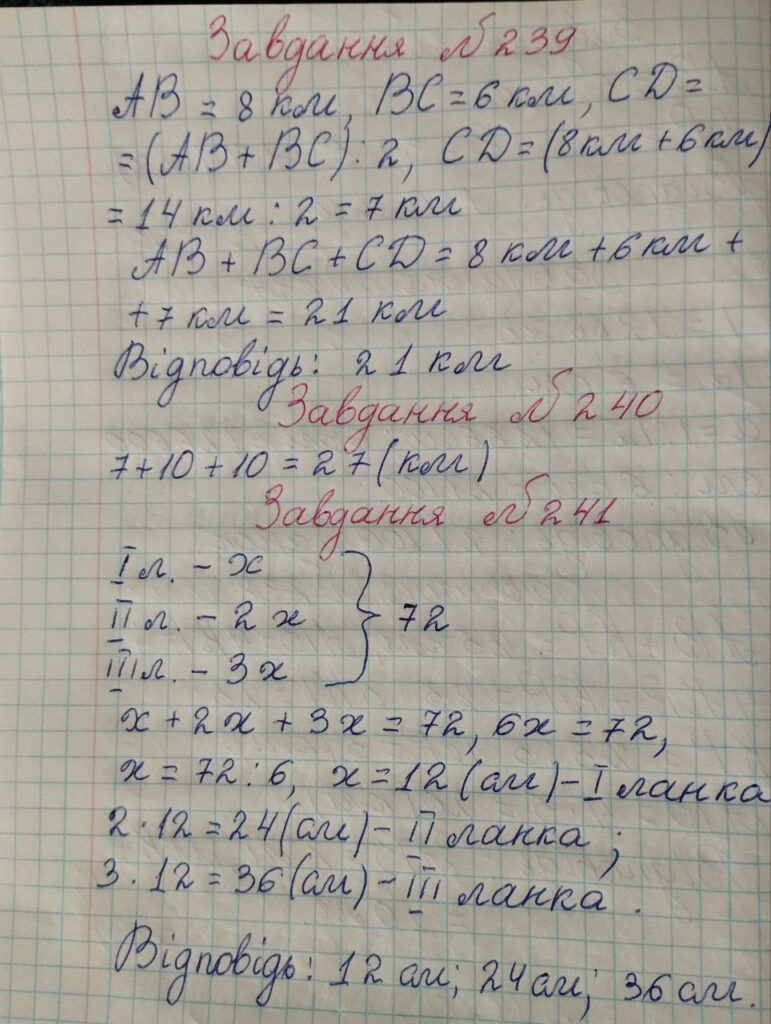 Завдання №239
AB = 8 км, BC = 6 км, CD =
= (AB + BC) : 2, CD = (8 км + 6 км)
= 14 км : 2 = 7 км
AB + BC + CD = 8 км + 6 км +
+ 7 км = 21 км
Відповідь: 21 км
Завдання №240
7 + 10 + 10 = 27 (км)
Завдання №241
I л. - x
II л. - 2x } 72
III л. - 3x
x + 2x + 3x = 72, 6x = 72,
x = 72 : 6, x = 12 (см) - I ланка
2 · 12 = 24 (см) - II ланка;
3 · 12 = 36 (см) - III ланка.
Відповідь: 12 см; 24 см; 36 см.